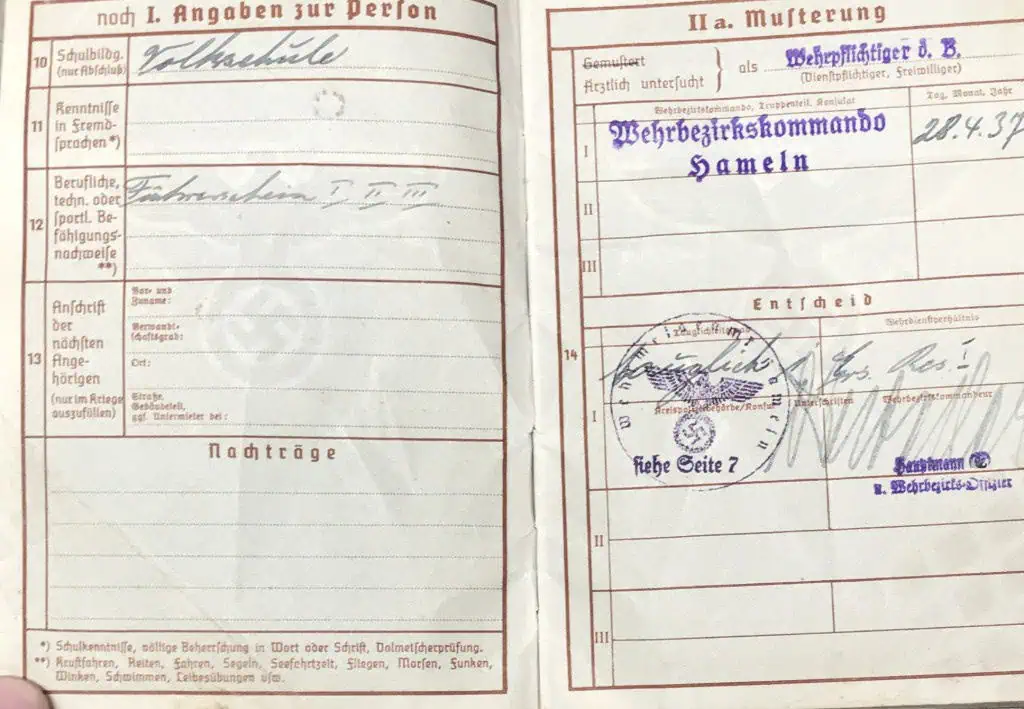 noch I. Angaben zur Perſon
10 Schulbildg. (nur Abſchluß)
Volksschule
11 Kenntniſſe in Fremdſprachen *)
12 Berufliche, techn. oder ſportl. Befähigungsnachweiſe **)
Führerschein I II III
13 Anſchrift der nächſten Angehörigen (nur im Kriege auszufüllen)
Vor- und Zuname:
Verwandtſchaftsgrad:
Ort:
Straße, Gebäudeteil, ggf. Untermieter bei:
Nachträge
*) Schulkenntniſſe, völlige Beherrſchung in Wort oder Schrift, Dolmetſcherprüfung.
**) Kraftfahren, Reiten, Fahren, Segeln, Seefahrtzeit, Fliegen, Morſen, Funken,
Winken, Schwimmen, Leibesübungen uſw.
II a. Muſterung
Gemuſtert
Ärztlich unterſucht
als Wehrpflichtiger d. B.
(Dienſtpflichtiger, Freiwilliger)
Wehrbezirkskommando, Truppenteil, Konſulat
Tag, Monat, Jahr
I Wehrbezirkskommando
Hameln
28.4.37
II
III
Entſcheid
14
Tauglichkeitsgrad
Wehrdienſtverhältnis
tauglich 1
Ers. Res. I
Wehrmeldeamt Hameln
Kreispolizeibehörde/Konſul
Unterſchriften
Wehrbezirkskommandeur
I
ſiehe Seite 7
Hauptmann (E)
u. Wehrbezirks-Offizier
II
III